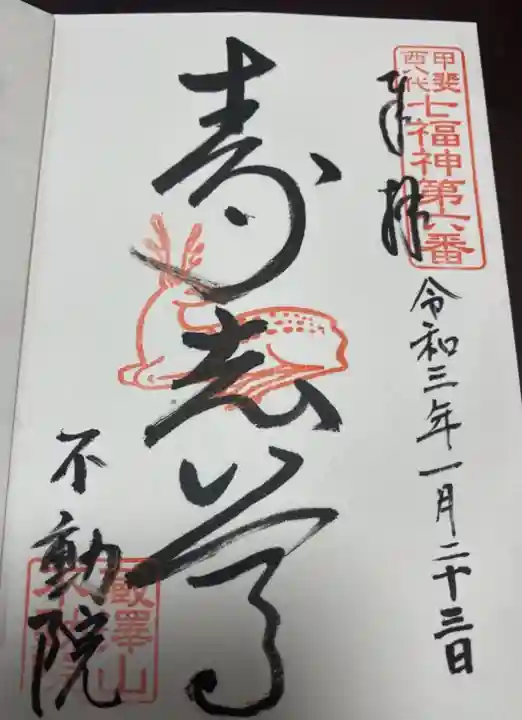 甲斐
西八代
七福神第六番
奉拝
令和三年一月二十三日
寿老尊
不動院
飯澤山